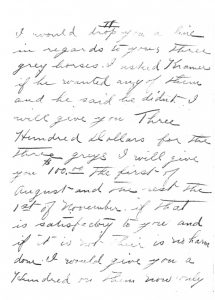 II
I would drop you a line
in regards to your three
grey horses. I asked Kramer
if he wanted any of them
and he said he didnt I
will give you Three
Hundred Dollars for the
three greys I will give
you $100.00 the first of
August and the rest the
1st of November if that
is satisfactory to you and
if it is not their is no harm
done I would give you a
Hundred on them now only